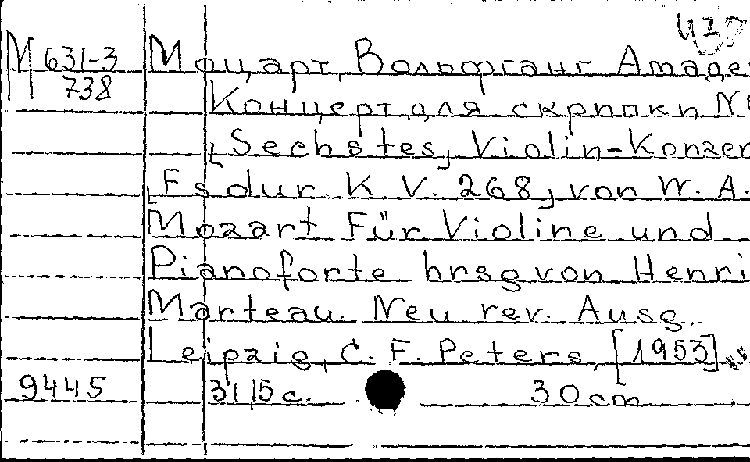 М 631-3 Моцарт, Вольфганг Амаде
738 Концерт для скрипки №
Sechstes, Violin-Konzer
Es dur K. V. 268, von W. A.
Mozart Für Violine und
Pianoforte hrsg von Henri
Marteau. Neu rev. Ausg.
Leipzig, C. F. Peters, [1953]
9445 31, 15 c. 30 cm